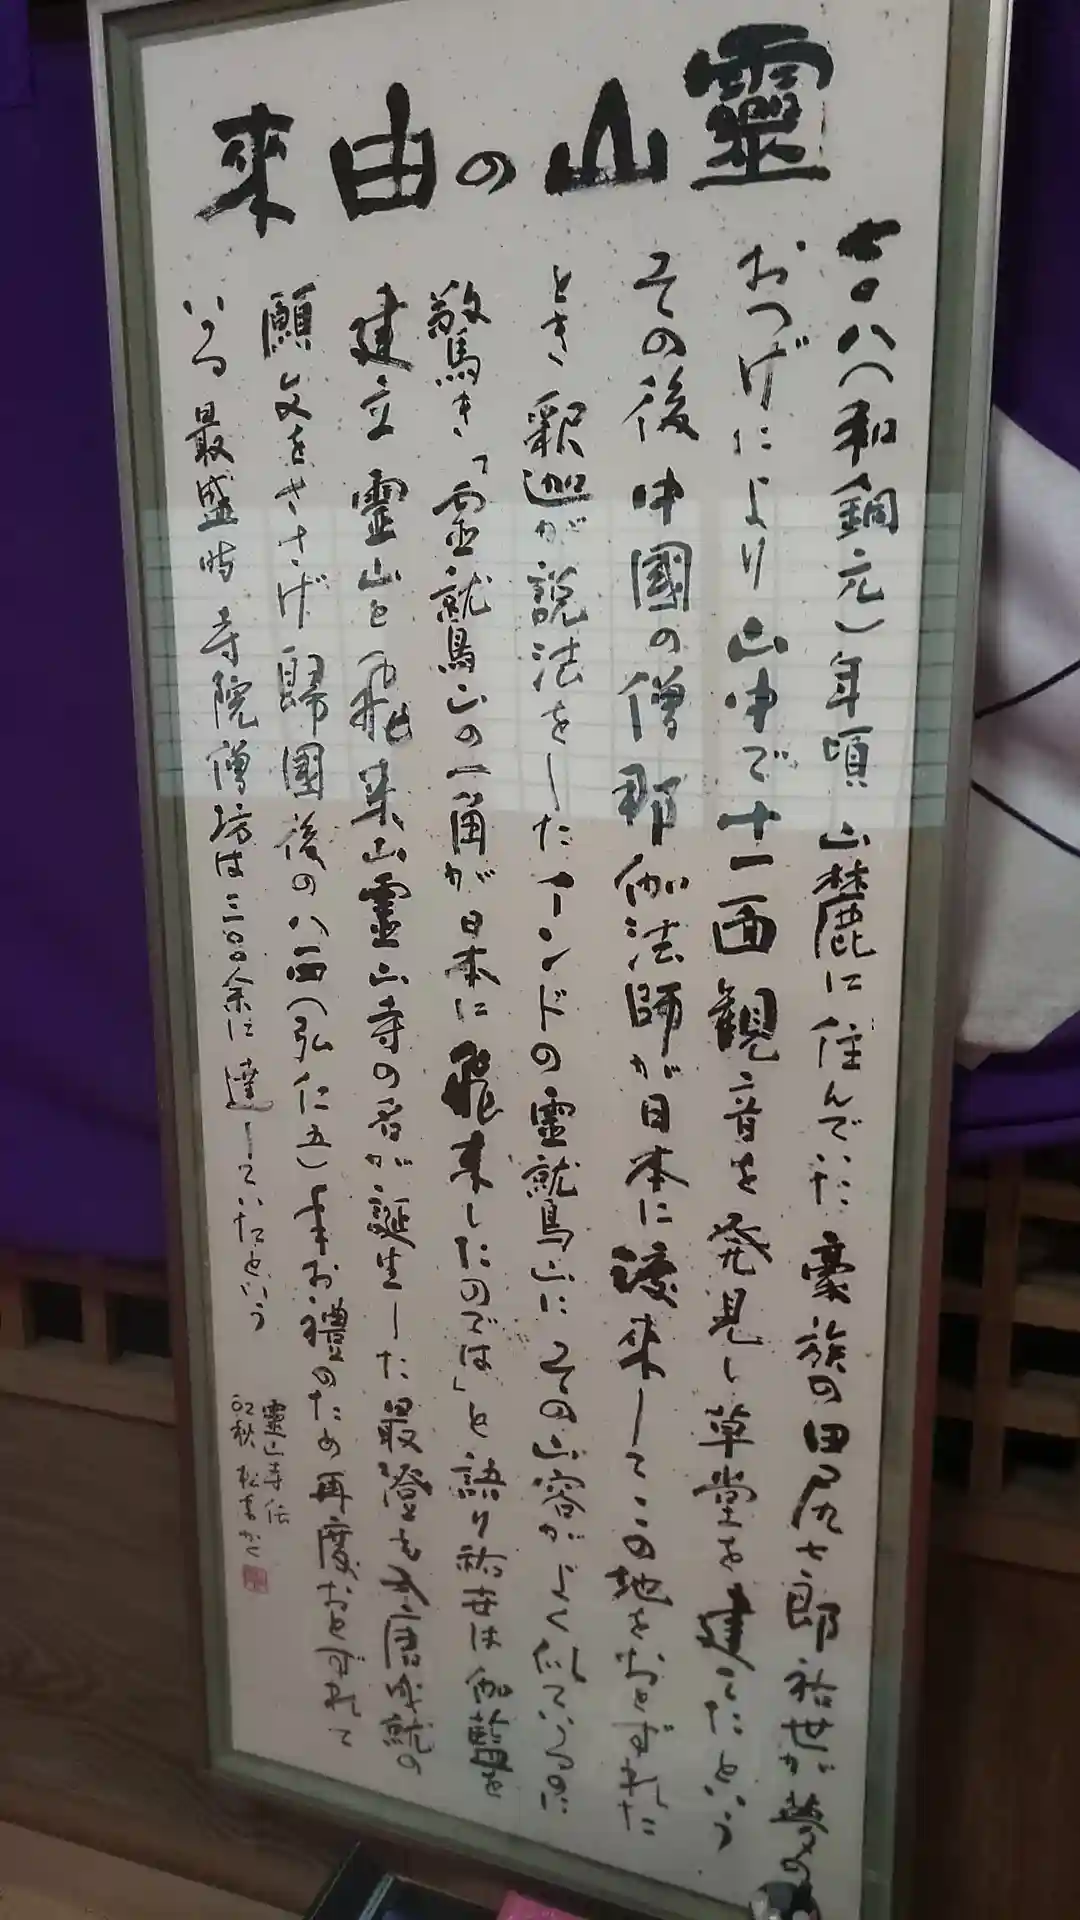 靈山の由来
七〇八(和銅元)年頃 山麓に住んでいた 豪族の田尻七郎裕世が夢の
おつげにより山中で十一面観音を発見し草堂を建てたという
その後中國の僧那伽法師が日本に渡来してこの地をおとずれた
とき釈迦が説法をしたインドの霊鷲山にその山容がよく似ているのに
驚き「霊鷲山の一角が日本に飛来したのでは」と語り裕世は伽藍を
建立 霊山と飛来山霊山寺の名が誕生した最澄も入唐成就の
願文をささげ歸國後の八一四(弘仁五)年お禮のため再度おとずれて
いる 最盛時 寺院僧坊は三〇〇余に達していたという
靈山寺伝
02秋 かく